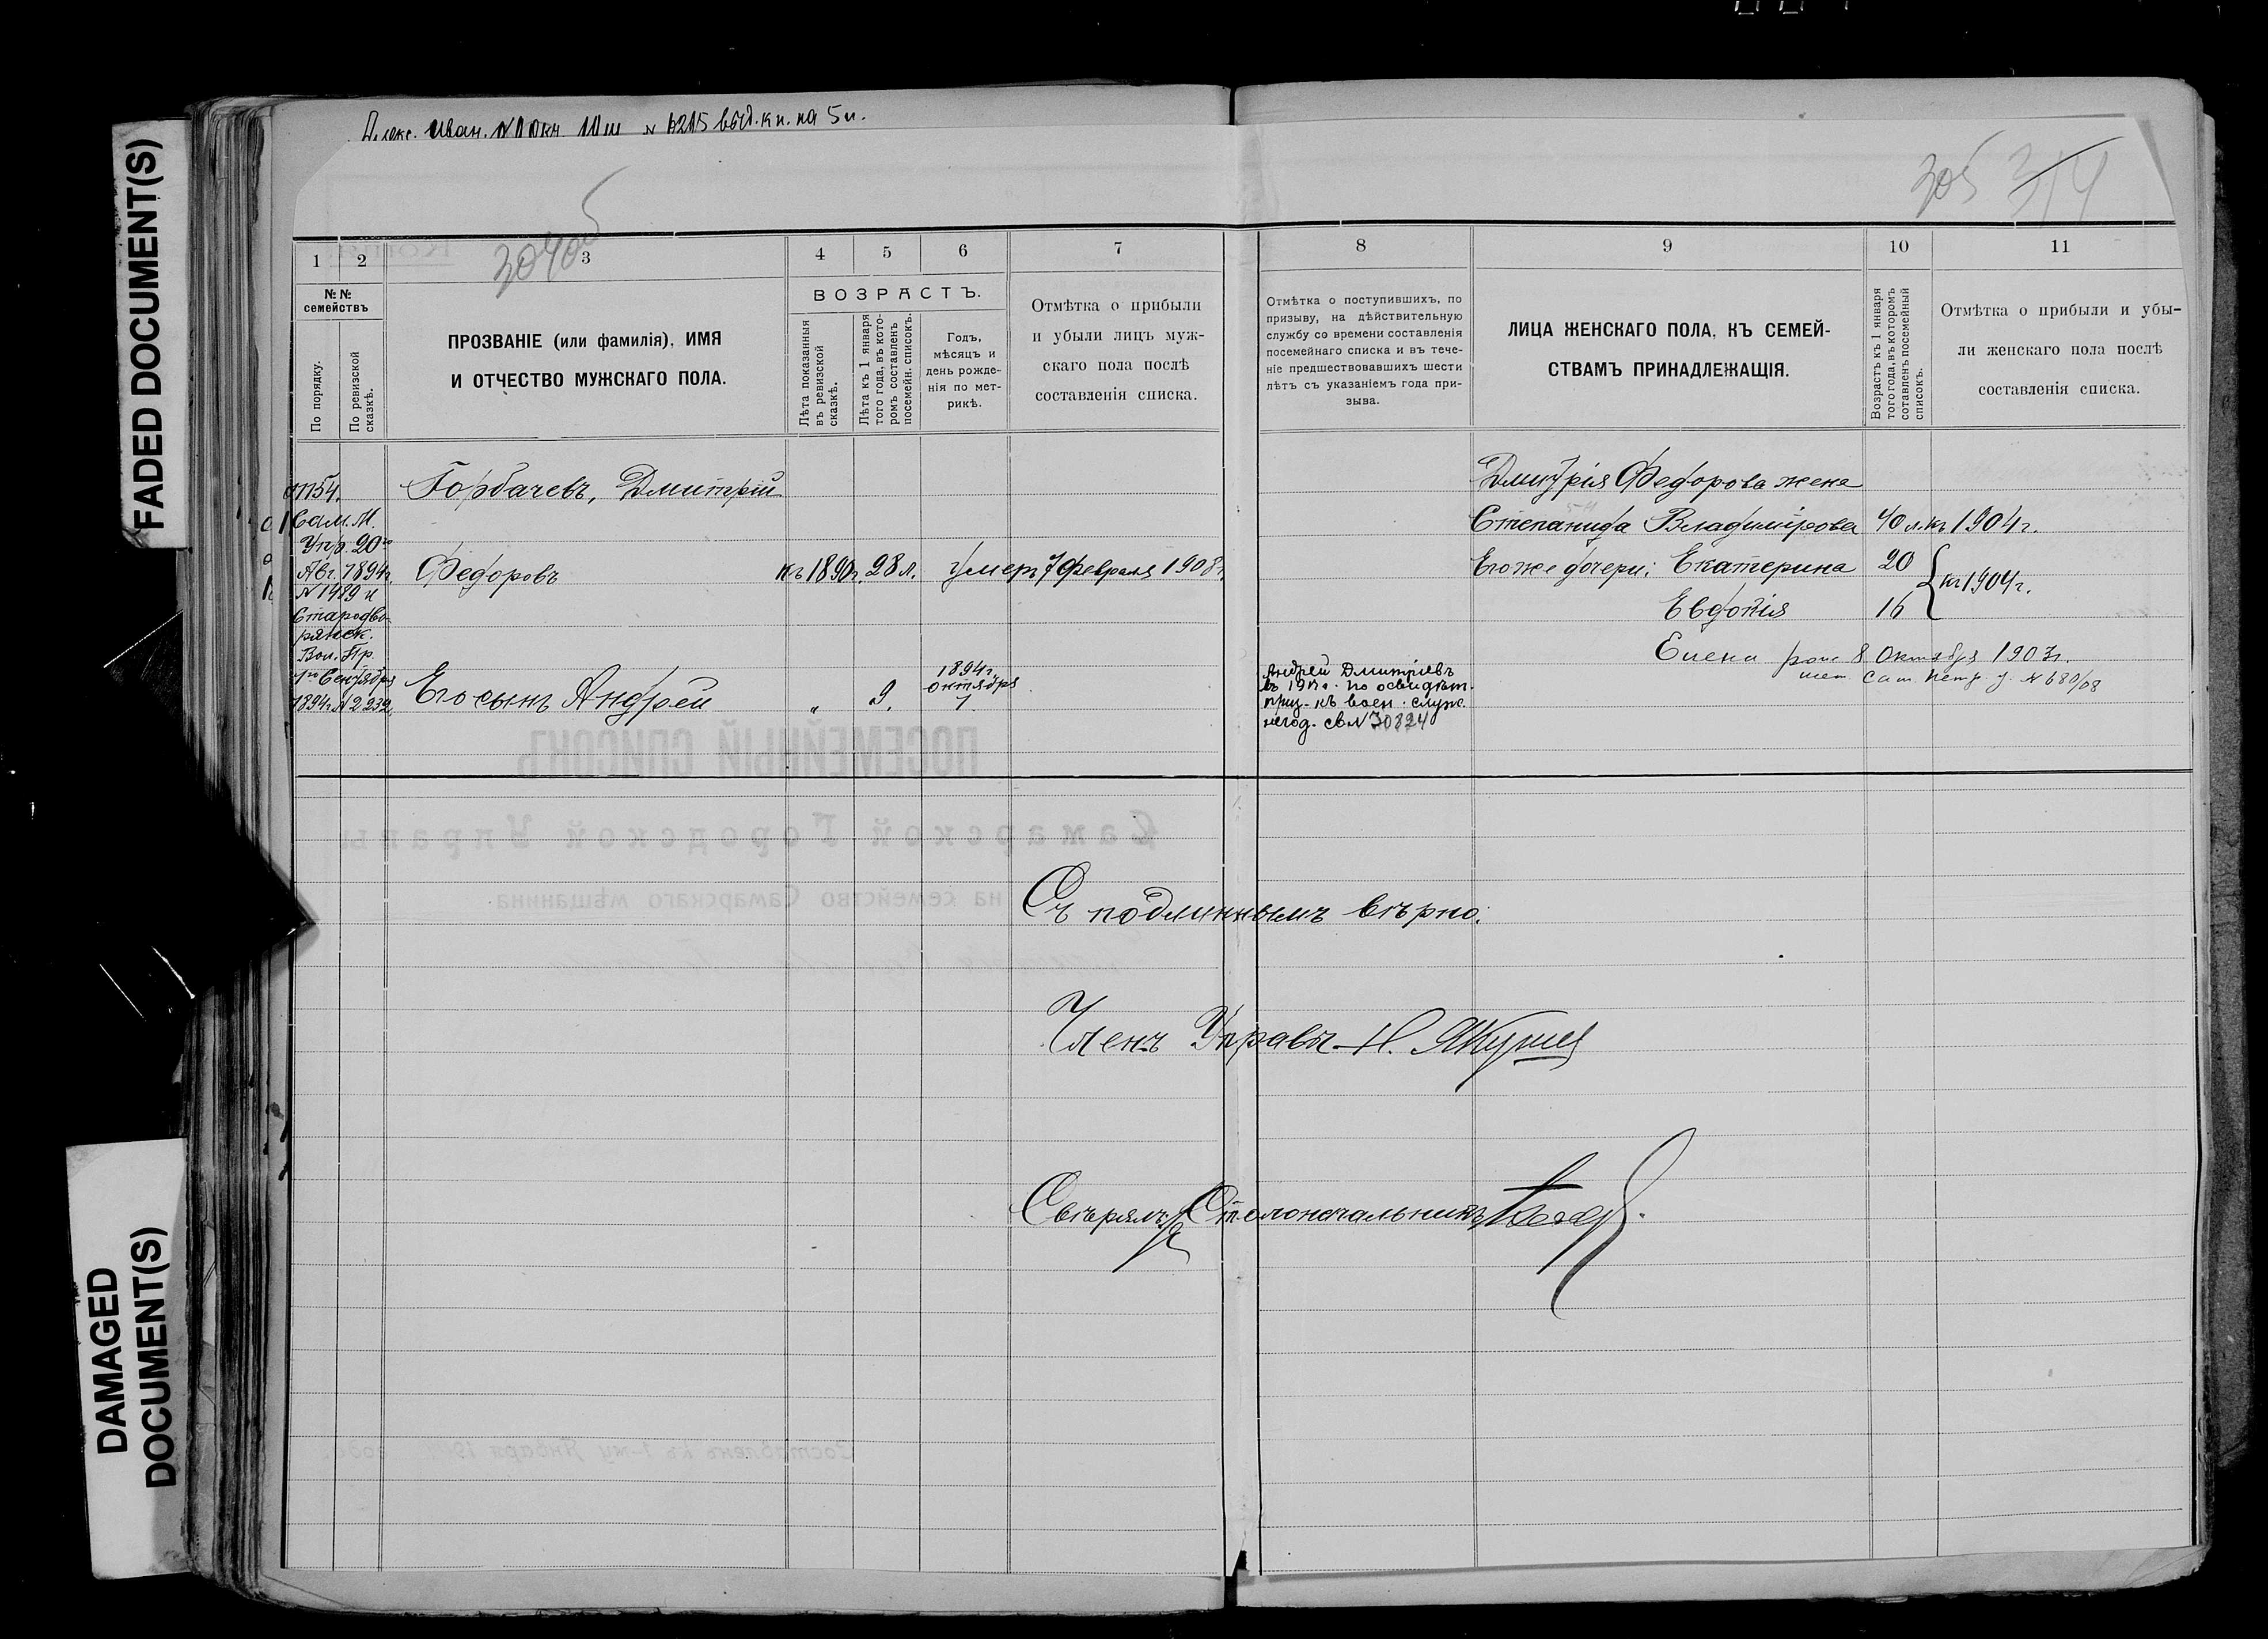 FADED DOCUMENT(S)
DAMAGED
DOCUMENT(S)
Алекс. Иван. 10 ш № 6215 выд. кн. на 5 л.
304 об
305 314
1 2 3 4 5 6 7 8 9 10 11
№ №
семействъ
По порядку.
По ревизской
сказкѣ.
ПРОЗВАНІЕ (или фамилія), ИМЯ
И ОТЧЕСТВО МУЖСКАГО ПОЛА.
ВОЗРАСТЪ.
Лѣта показанныя
въ ревизской
сказкѣ.
Лѣта къ 1 января
того года, въ кото-
ромъ составленъ
посемейн. списокъ.
Годъ,
мѣсяцъ и
день рожде-
нія по мет-
рикѣ.
Отмѣтка о прибыли
и убыли лицъ муж-
скаго пола послѣ
составленія списка.
Отмѣтка о поступившихъ, по
призыву, на дѣйствительную
службу со времени составленія
посемейнаго списка и въ тече-
ніе предшествовавшихъ шести
лѣтъ съ указаніемъ года при-
зыва.
ЛИЦА ЖЕНСКАГО ПОЛА, КЪ СЕМЕЙ-
СТВАМЪ ПРИНАДЛЕЖАЩІЯ.
Возрастъ къ 1 января
того года, въ которомъ
сотавленъ посемейный
списокъ.
Отмѣтка о прибыли и убы-
ли женскаго пола послѣ
составленія списка.
1154.
Сам. М.
Упр. 20го
Авг. 1894г.
№ 1489 и
Стародво-
рянск.
Вол. Пр.
1го Сентября
1894г. № 2232.
Горбачевъ, Дмитрій
Федоровъ къ 1890г. 28 л. умеръ 7 Февраля 1908г.
Его сынъ Андрей " 9. 1894г.
октября
1.
Андрей Дмитріевъ
въ по освидѣт.
приз. къ воен. служ.
негод. св № 30824
Дмитрія Федорова жена
Степанида Владимірова 40 л. къ 1904г.
Его же дочери: Екатерина 20
Евдокія 16 } къ 1904г.
Елена рож 8 Октября 1903г.
мет. Сам. Петр. ц. № 680/08
Съ подлиннымъ вѣрно.
Членъ Управы Н. Якушев
Свѣрялъ: Столоначальникъ
ПОСЕМЕЙНЫЙ СПИСОКЪ
Самарской Городской Управы
на семейство Самарскаго мѣщанина
Составленъ къ 1-му Января 19 года